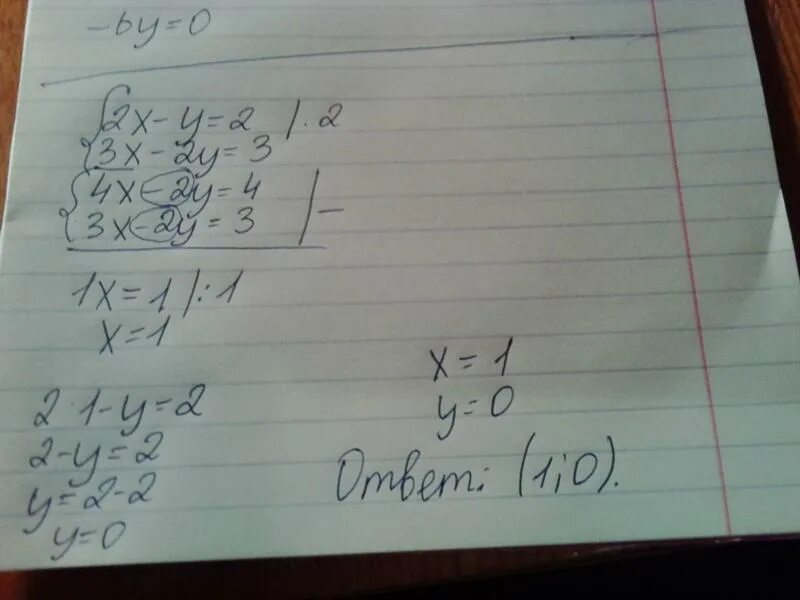 -6y=0
2x-y=2 |·2
3x-2y=3
4x-2y=4
3x-2y=3 |-
1x=1 |:1
x=1
2·1-y=2
2-y=2
y=2-2
y=0
x=1
y=0
Ответ: (1;0).